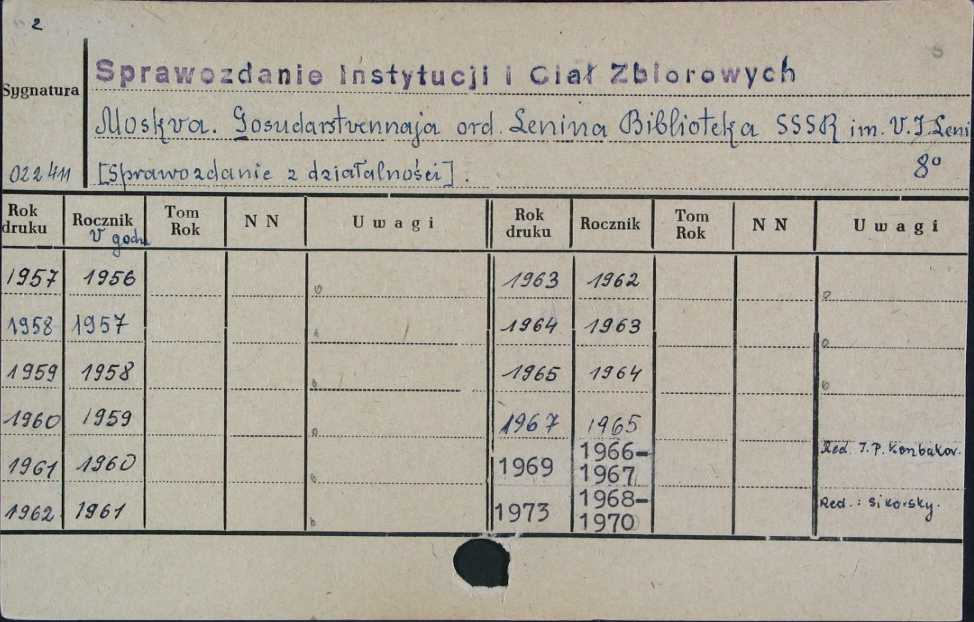 2
Sprawozdanie Instytucji i Ciał Zbiorowych
Sygnatura
Moskva. Gosudarstvennaja ord. Lenina Biblioteka SSSR im. V. I. Leni
022411 [Sprawozdanie z działalności]. 8º
Rok druku Rocznik Tom Rok NN Uwagi Rok druku Rocznik Tom Rok NN Uwagi
V godu
1957 1956 1963 1962
1958 1957 1964 1963
1959 1958 1965 1964
1960 1959 1967 1965
1961 1960 1969 1966-1967 Red. I. P. Konbakov.
1962 1961 1973 1968-1970 Red.: Sikorsky.